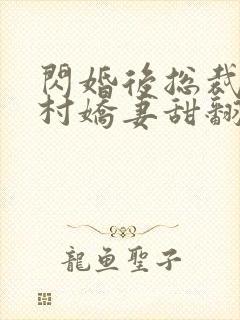 閃婚後总裁
村嬌妻甜翻
龍鱼聖子